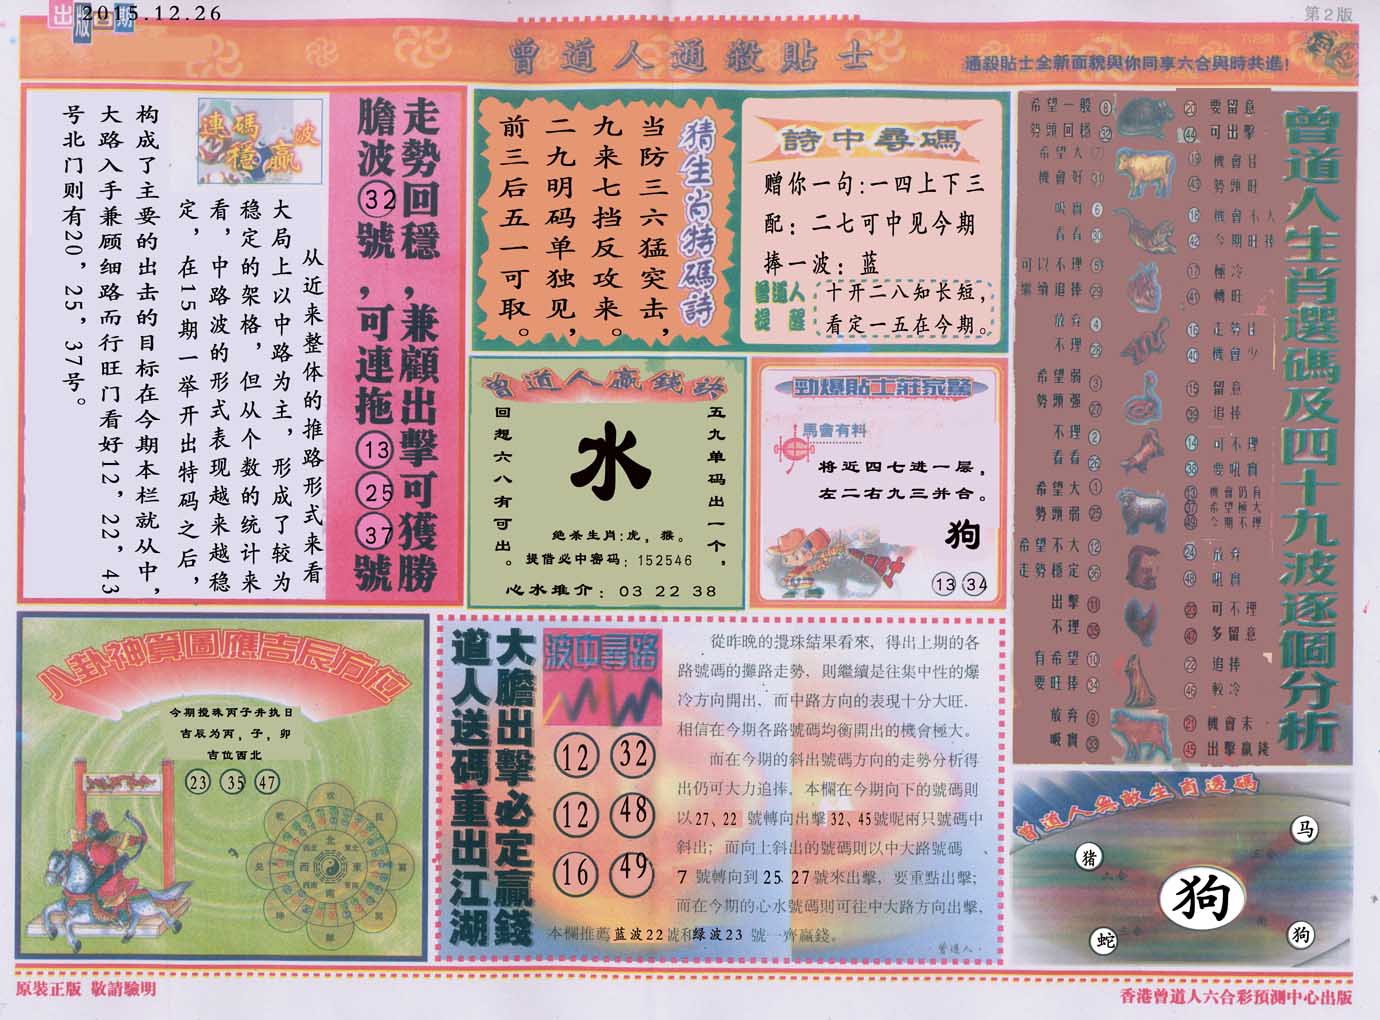 出版日期
2015.12.26
第2版
曾道人通殺貼士
通殺貼士全新面貌與你同享六合與時共進!
走勢回穩,兼顧出擊可獲勝
膽波32號,可連拖13 25 37號
連碼波
穩贏
从近来整体的推路形式来看
大局上以中路为主,形成了较为
稳定的架格,但从个数的统计来
看,中路波的形式表现越来越稳
定,在15期一举开出特码之后,
构成了主要的出击的目标在今期本栏就从中,
大路入手兼顾细路而行旺门看好12,22,43
号北门则有20,25,37号。
猜生肖特碼詩
当防三六猛突击,
九来七挡反攻来。
二九明码单独见,
前三后五一可取。
詩中尋碼
赠你一句:一四上下三
配:二七可中见今期
捧一波:蓝
曾道人提醒
十开二八知长短,
看定一五在今期。
曾道人贏錢詩
五九单码出一个,
回想六八有可出。
水
绝杀生肖:虎,猴。
提借必中密码:152546
心水推介:03 22 38
勁爆貼士莊家驚
馬會有料
将近四七进一层,
左二右九三并合。
狗
13 34
曾道人生肖選碼及四十九波逐個分析
希望一般
勢頭回穩 32
希望大
機會好
吸實 6
看看 30
可以不理 5
繼續追捧 29
放弃 4
不理
希望弱 3
勢頭强 27
不理 2
看看 26
希望大 1
勢頭弱 25
希望不大 12
走勢穩定 36
出擊 11
不理 35
有希望 10
要旺捧 34
放弃 9
吸實 33
20 要留意
44 可出擊
19 機會佳
43 勢頭旺
18 機會不大
42 今期旺捧
17 極冷
41 轉旺
16 走勢佳
40 機會少
15 留意
39 追捧
14 可不理
38 要吼實
13 機會仍有
37 希望極大
49 今期不捧
24 放弃
48 吼實
23 可不理
47 多留意
22 追捧
46 較冷
21 機會未
45 出擊贏錢
八卦神算圖應吉辰方位
今期搅珠丙子井执日
吉辰为丙,子,卯
吉位西北
23 35 47
北
西北
東北
西
東
西南
東南
南
大膽出擊必定贏錢
道人送碼重出江湖
波中尋路
12 32
12 48
16 49
從昨晚的攪珠結果看來,得出上期的各
路號碼的攤路走勢,則繼續是往集中性的爆
冷方向開出,而中路方向的表現十分大旺.
相信在今期各路號碼均衡開出的機會極大。
而在今期的斜出號碼方向的走勢分析得
出仍可大力追捧,本欄在今期向下的號碼則
以27、22 號轉向出擊32、45號呢兩只號碼中
斜出;而向上斜出的號碼則以中大路號碼、
7 號轉向到25 27號來出擊,要重點出擊;
而在今期的心水號碼則可往中大路方向出擊,
本欄推薦蓝波22號和绿波23 號一齊贏錢。
曾道人·
曾道人無敵生肖透碼
马
猪
狗
蛇
狗
原裝正版 敬請驗明
香港曾道人六合彩預測中心出版